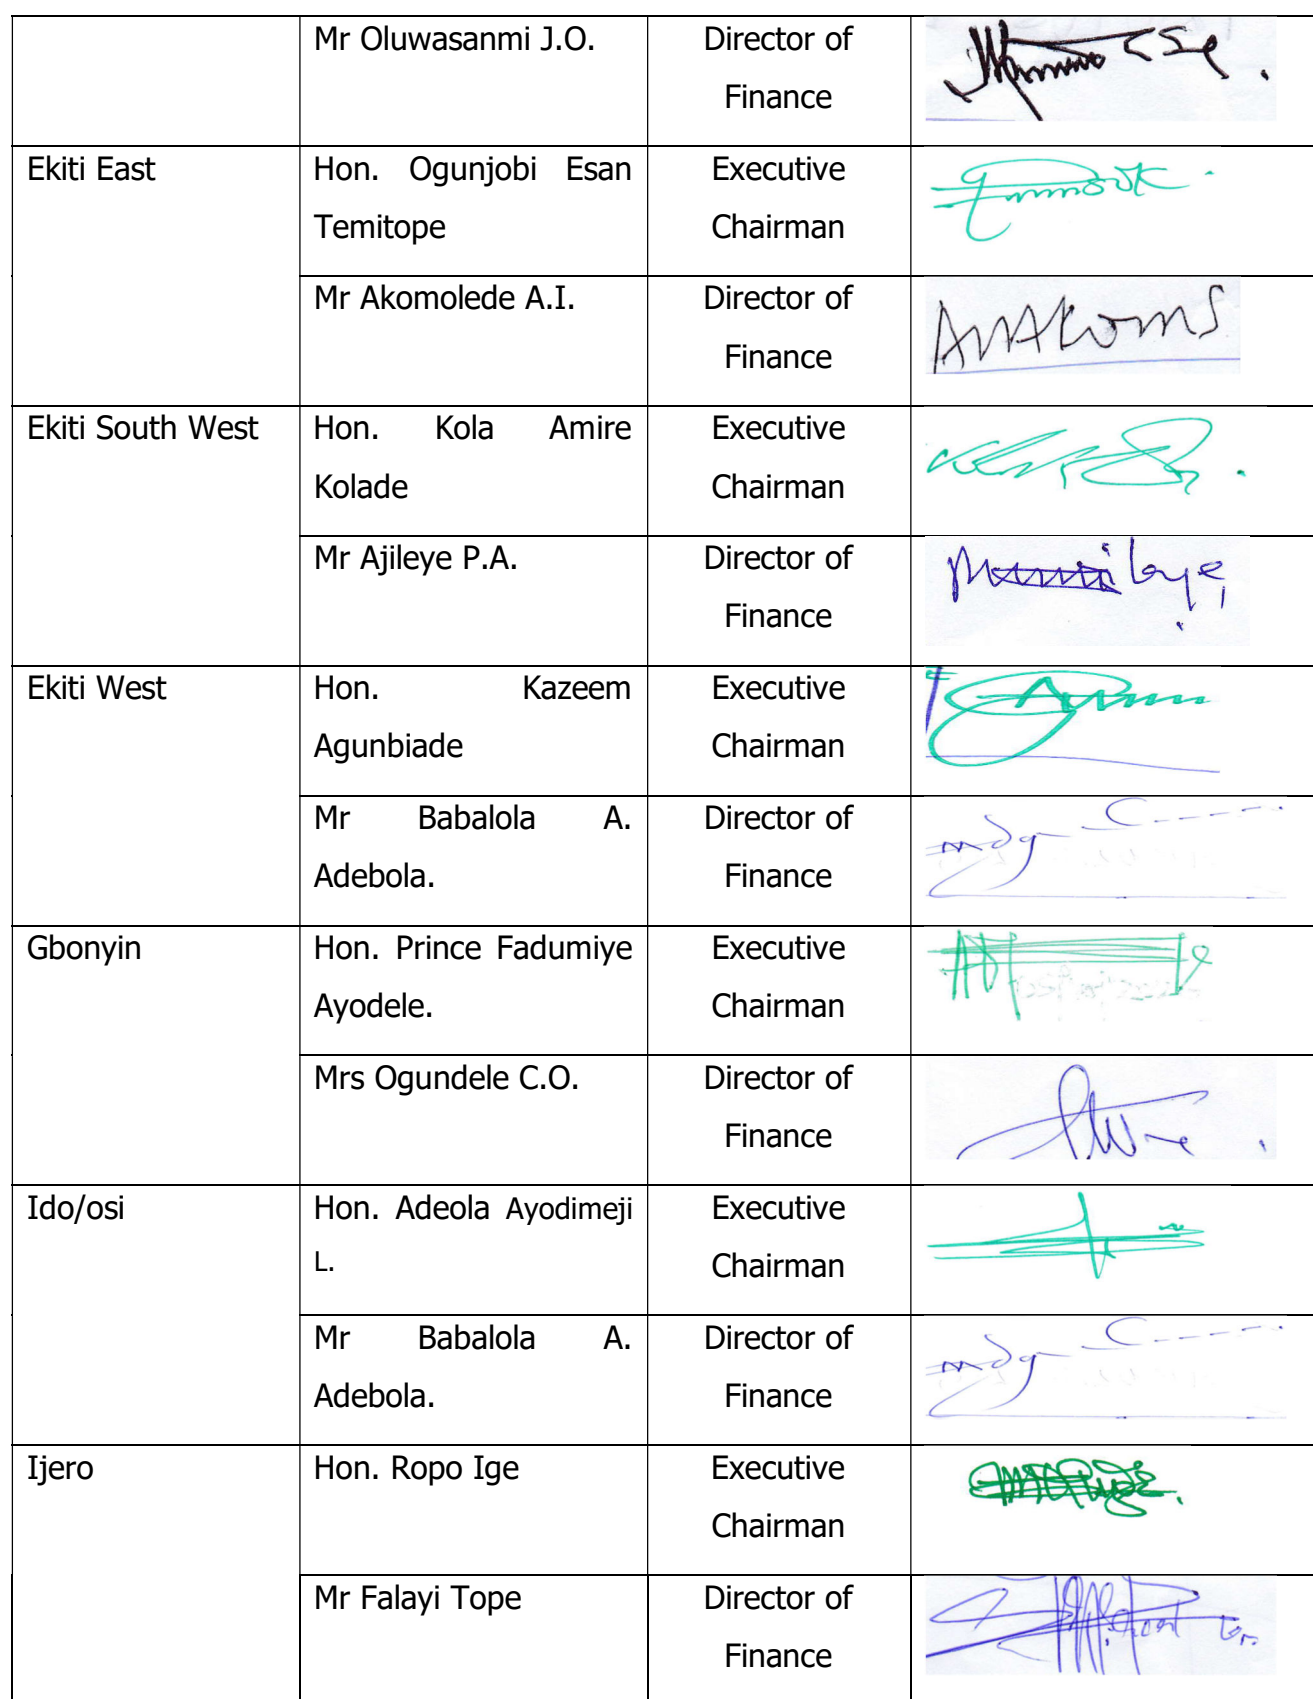 Mr Oluwasanmi J.O. Director of
Finance
Ekiti East Hon. Ogunjobi Esan Executive
Temitope Chairman
Mr Akomolede A.I. Director of
Finance
Ekiti South West Hon. Kola Amire Executive
Kolade Chairman
Mr Ajileye P.A. Director of
Finance
Ekiti West Hon. Kazeem Executive
Agunbiade Chairman
Mr Babalola A. Director of
Adebola. Finance
Gbonyin Hon. Prince Fadumiye Executive
Ayodele. Chairman
Mrs Ogundele C.O. Director of
Finance
Ido/osi Hon. Adeola Ayodimeji Executive
L. Chairman
Mr Babalola A. Director of
Adebola. Finance
Ijero Hon. Ropo Ige Executive
Chairman
Mr Falayi Tope Director of
Finance